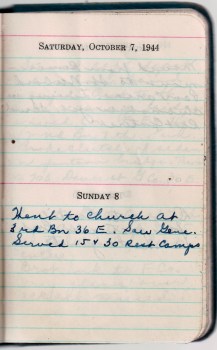 SATURDAY, OCTOBER 7, 1944
SUNDAY 8
Went to Church at
3rd Bn 36 E. Saw Gene.
Served 15 & 30 Rest Camps